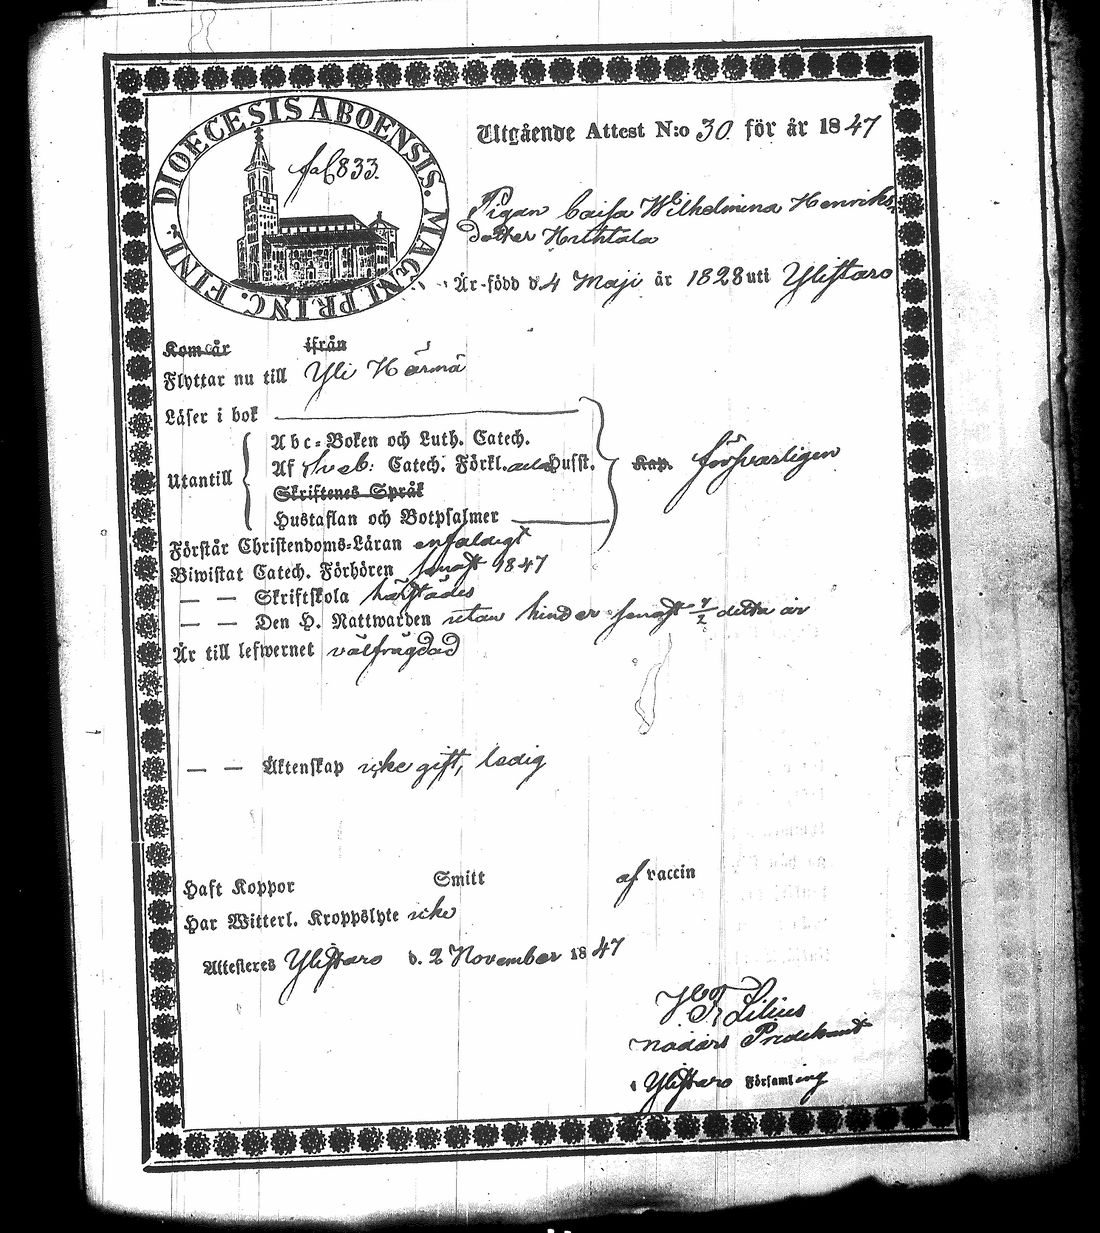 DIOECESIS ABOENSIS. MAGNI PRINC. FINL.
fol 833.
Utgående Attest N:o 30 för år 1847
Pigan Caisa Wilhelmina Henriks-
dotter
Är född d. 4 Maji år 1828 uti Ylistaro
Kom år ifrån
Flyttar nu till Yli Härmä
Läser i bok
Utantill
Abc-Boken och Luth. Catech.
Af Sveb: Catech. Förkl. Husst.
Kap. försvarligen
Skriftenes Språk
Hustaflan och Botpsalmer
Förstår Christendoms-Läran enfaldigt
Biwistat Catech. Förhören senast 1847
— — Skriftskola härstädes
— — Den H. Nattwarden utan hinder senast detta år
Är till lefwernet välfrägdad
— — Äktenskap icke gift, ledig
Haft Koppor Smitt af vaccin
Har Witterl. Kroppslyte icke
Attesteres Ylistaro d. 2 November 1847
Lilius
Nådårs Predikant
i Ylistaro Församling